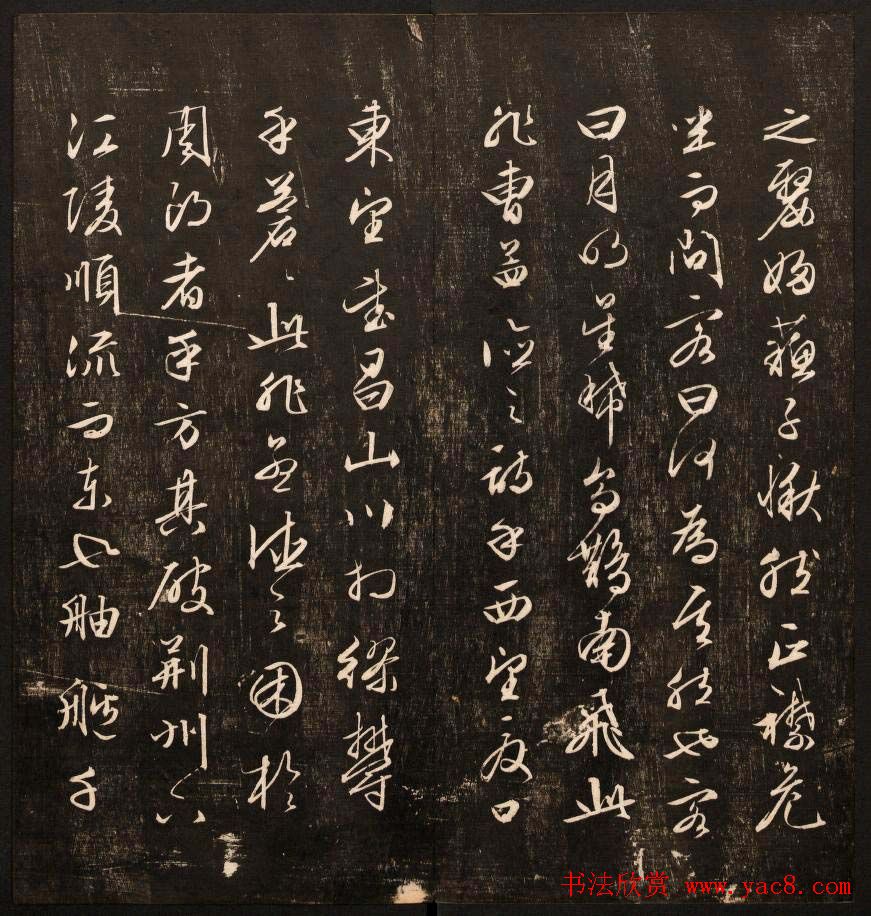 之嫠婦蘇子愀然正襟危
坐而問客曰何為其然也客
曰月明星稀烏鵲南飛此
非曹孟德之詩乎西望夏口
東望武昌山川相繆鬱
乎蒼々此非孟德之困於
周郎者乎方其破荊州下
江陵順流而東也舳艫千
书法欣赏 www.yac8.com